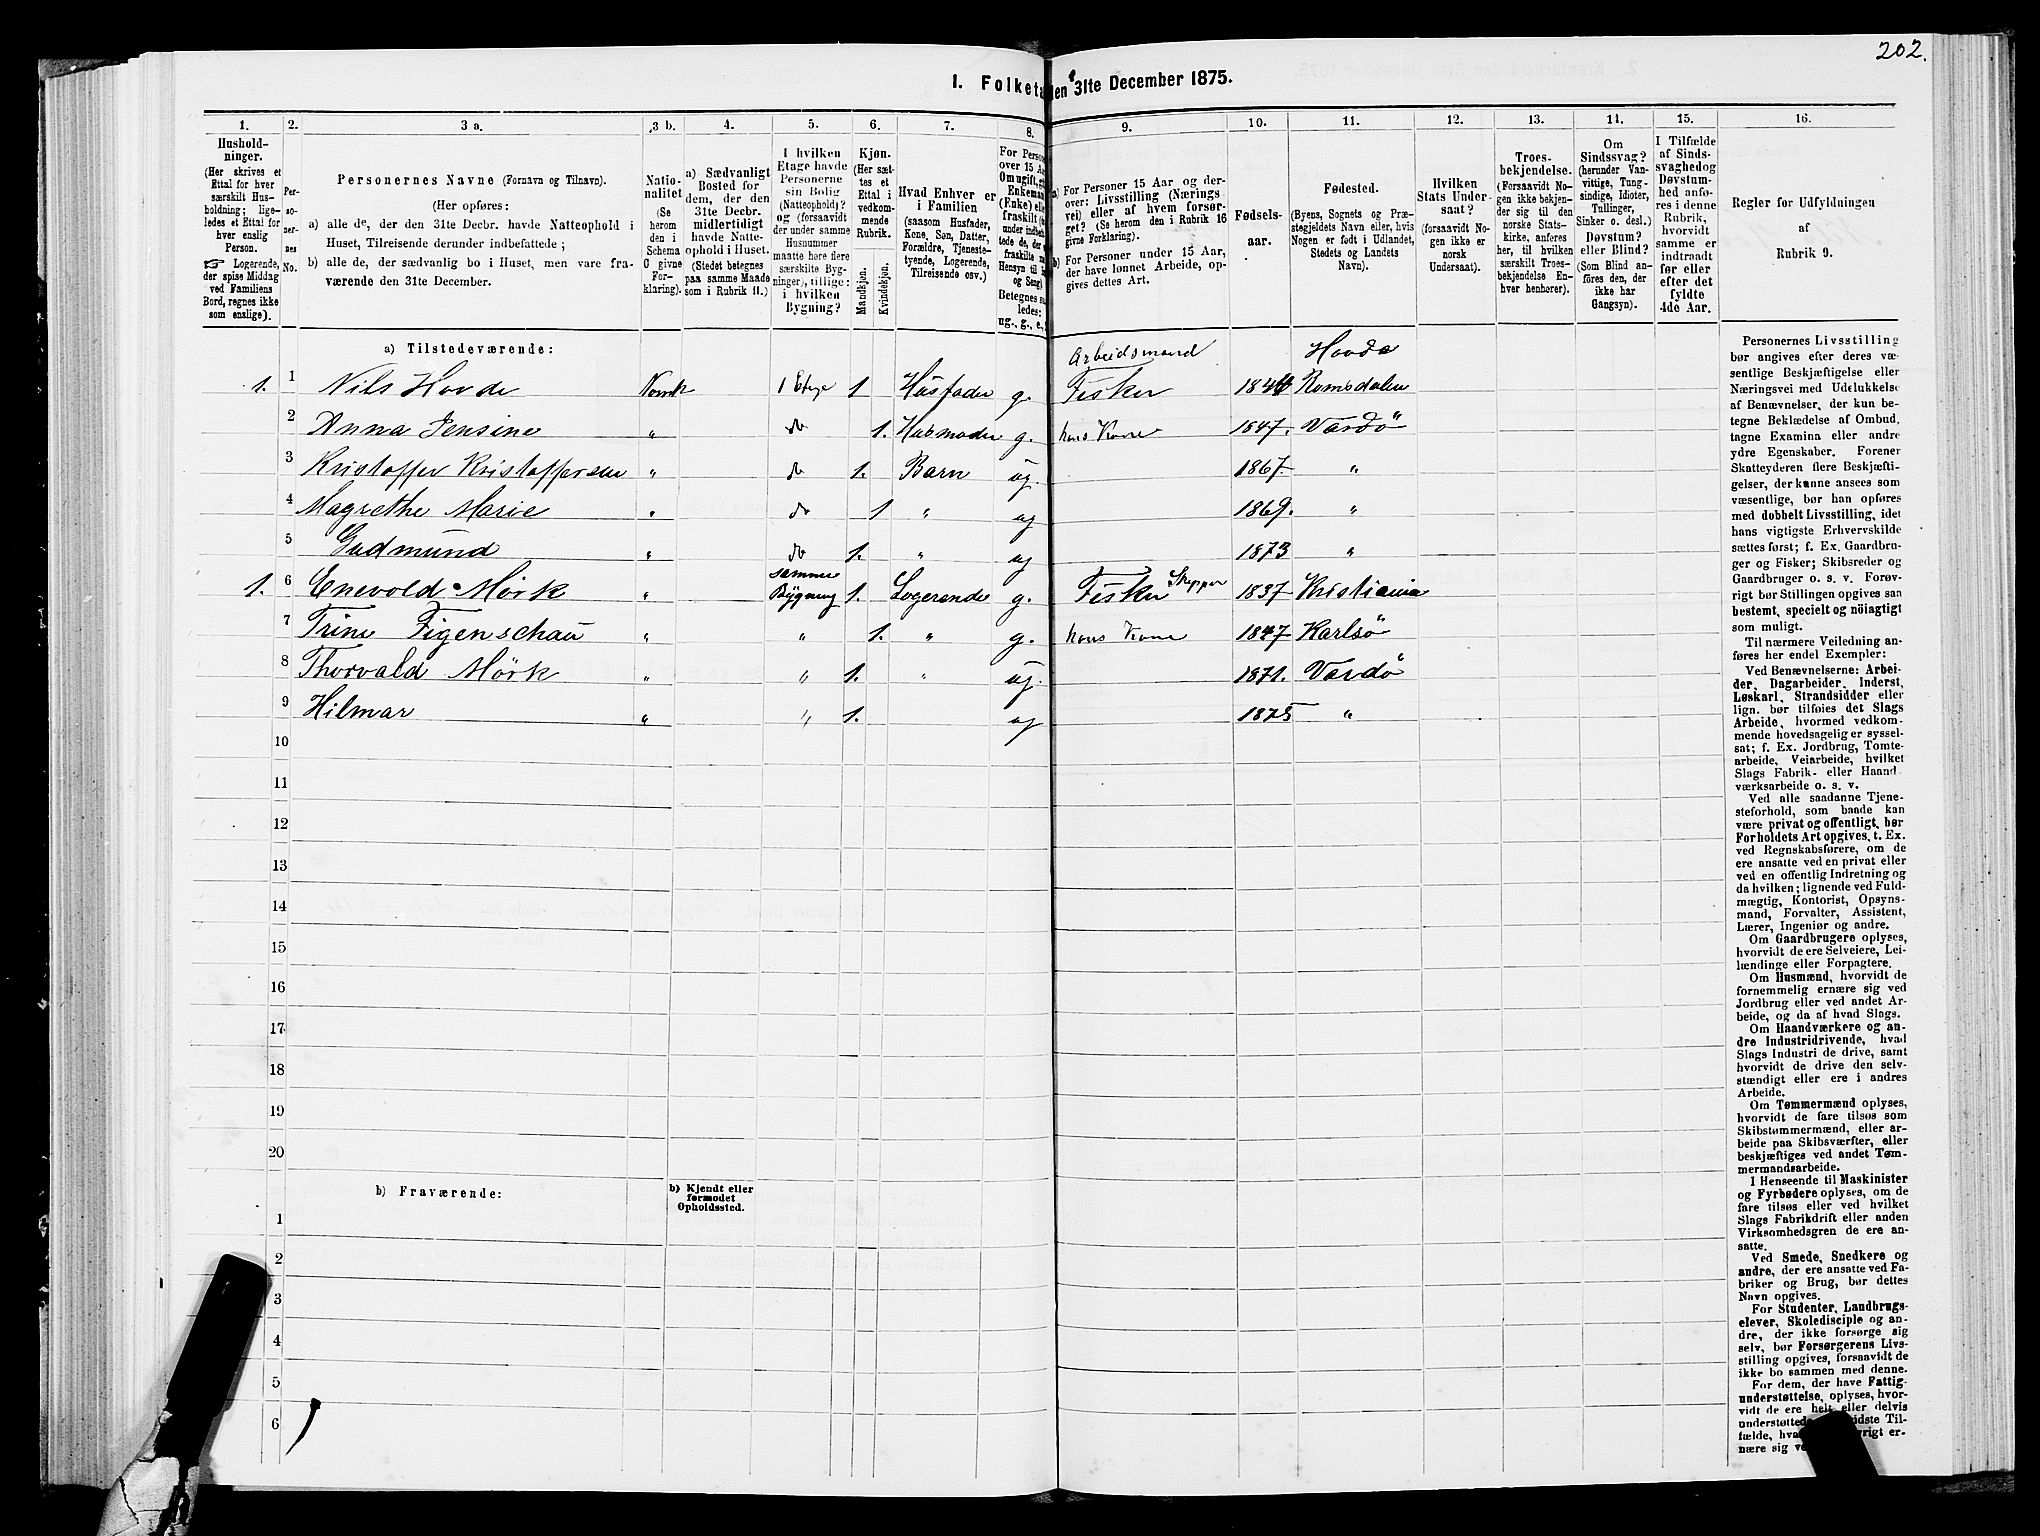 202.
I. Folketa
en 31te December 1875.
1. 2. 3 a. 3 b. 4. 5. 6. 7. 8. 9. 10. 11. 12. 13. 14. 15. 16.
Hushold-
ninger.
(Her skrives et
Ettal for hver
særskilt Hus-
holdning; lige-
ledes et Ettal for
hver enslig
Person.
☞ Logerende,
der spise Middag
ved Familiens
Bord, regnes ikke
som enslige).
Per-
so-
ner-
nes
No.
Personernes Navne (Fornavn og Tilnavn).
(Her opføres:
a) alle de, der den 31te Decbr. havde Natteophold i
Huset, Tilreisende derunder indbefattede;
b) alle de, der sædvanlig bo i Huset, men vare fra-
værende den 31te December.
Natio-
nalitet
(Se
herom
den i
Schema
6 givne
For-
klaring).
a) Sædvanligt
Bosted for
dem, der den
31te Decbr.
midlertidigt
havde Natte-
ophold i Huset.
(Stedet betegnes
paa samme Maade
som i Rubrik 11.)
I hvilken
Etage havde
Personerne
sin Bolig
(Natteophold)?
og (forsaavidt
der under samme
Husnummer
maatte høre flere
særskilte Byg-
ninger), tillige:
i hvilken
Bygning?
Kjøn.
(Her sæt-
tes et
Ettal i
vedkom-
mende
Rubrik.
Mandkjøn.
Kvindekjøn.
Hvad Enhver er
i Familien
(saasom Husfader,
Kone, Søn, Datter,
Forældre, Tjeneste-
tyende, Logerende,
Tilreisende osv.)
For Perso
over 15 Aa
Om ugift, g
Enkeman
(Enke) elle
fraskilt (
under indbe
tede de, de
fraskilte m
Hensyn til
og Seng)
Betegnes s
ledes:
ug., g., e.,
a) For Personer 15 Aar og der-
over: Livsstilling (Nærings-
vei) eller af hvem forsør-
get? (Se herom den i Rubrik 16
givne Forklaring).
b) For Personer under 15 Aar,
der have lønnet Arbeide, op-
gives dettes Art.
Fødsels-
aar.
Fødested.
(Byens, Sognets og Præ-
stegjeldets Navn eller, hvis
Nogen er født i Udlandet,
Stedets og Landets
Navn).
Hvilken
Stats Under-
saat?
(forsaavidt No-
gen ikke er
norsk
Undersaat).
Troes-
bekjendelse.
(Forsaavidt No-
gen ikke bekjen-
der sig til den
norske Stats-
kirke, anføres
her, til hvilken
særskilt Troes-
bekjendelse En-
hver henhører).
Om
Sindssvag?
(herunder Van-
vittige, Tung-
sindige, Idioter,
Tullinger,
Sinker o. desl.)
Døvstum?
eller Blind?
(Som Blind an-
føres den, der
ikke har
Gangsyn).
I Tilfælde
af Sinds-
svaghed og
Døvstum-
hed anfø-
res i denne
Rubrik,
hvorvidt
samme er
indtraadt
før eller
efter det
fyldte
4de Aar.
Regler for Udfyldningen
af
Rubrik 9.
a) Tilstedeværende:
Arbeidsmand Hovde
1. 1 Nils Hovde Norsk 1 Etage 1 Husfader g. Fisker 1844 Romsdalen
2 Anna Jensine " do 1. Husmoder g. hans Kone 1847. Vardö
3 Kristoffer Kristoffersen " do 1. Barn ug. 1867. "
4 Magrethe Marie " do 1 " ug 1869. "
5 Gudmund " do 1. " ug 1873 "
1. 6 Enevold Mörk " samme Bygning 1. Logerende g. Fisker Skipper 1837 Kristiania
7 Trine Figenschau " " 1. " g. hans Kone 1847 Karlsö
8 Thorvald Mörk " " 1. " ug. 1871. Vardö
9 Hilmar " " 1. ug 1875 "
10
11
12
13
14
15
16
17
18
19
20
b) Fraværende:
b) Kjendt eller
formodet
Opholdssted.
1
2
3
4
5
6
Personernes Livsstilling
bør angives efter deres væ-
sentlige Beskjæftigelse eller
Næringsvei med Udelukkelse
af Benævnelser, der kun be-
tegne Beklædelse af Ombud,
tagne Examina eller andre
ydre Egenskaber. Forener
Skatteyderen flere Beskjæfti-
gelser, der kunne ansees som
væsentlige, bør han opføres
med dobbelt Livsstilling, idet
hans vigtigste Erhvervskilde
sættes først; f. Ex. Gaardbru-
ger og Fisker; Skibsreder og
Gaardbruger o. s. v. Forøv-
rigt bør Stillingen opgives saa
bestemt, specielt og nöiagtigt
som muligt.
Til nærmere Veiledning an-
føres her endel Exempler:
Ved Benævnelserne: Arbei-
der, Dagarbeider, Inderst,
Løskarl, Strandsidder eller
lign. bør tilføies det Slags
Arbeide, hvormed vedkom-
mende hovedsagelig er syssel-
sat; f. Ex. Jordbrug, Tomte-
arbeide, Veiarbeide, hvilket
Slags Fabrik- eller Haand-
værksarbeide o. s. v.
Ved alle saadanne Tjene-
steforhold, som baade kan
være privat og offentligt, bør
Forholdets Art opgives, t. Ex.
ved Regnskabsførere, om de
ere ansatte ved en privat eller
ved en offentlig Indretning og
da hvilken; lignende ved Fuld-
mægtig, Kontorist, Opsyns-
mand, Forvalter, Assistent,
Lærer, Ingeniør og andre.
Om Gaardbrugere oplyses,
hvorvidt de ere Selveiere, Lei-
lændinge eller Forpagtere.
Om Husmænd, hvorvidt de
fornemmelig ernære sig ved
Jordbrug eller ved andet Ar-
beide, og da af hvad Slags.
Om Haandværkere og an-
dre Industridrivende, hvad
Slags Industri de drive, samt
hvorvidt de drive den selv-
stændigt eller ere i andres
Arbeide.
Om Tømmermænd oplyses,
hvorvidt de fare tilsøs som
Skibstømmermænd, eller ar-
beide paa Skibsværfter, eller
beskjæftiges ved andet Tøm-
mermandsarbeide.
I Henseende til Maskinister
og Fyrbødere oplyses, om de
fare tilsøs eller ved hvilket
Slags Fabrikdrift eller anden
Virksomhedsgren de ere an-
satte.
Ved Smede, Snedkere og
andre, der ere ansatte ved Fa-
briker og Brug, bør dettes
Navn opgives.
For Studenter, Landbrugs-
elever, Skoledisciple og an-
dre, der ikke forsørge sig
selv, bør Forsørgerens Livs-
stilling opgives, forsaavidt de
ikke bo sammen med denne.
For dem, der have Fattig-
understøttelse, oplyses, hvor-
vidt de ere helt eller delvis
understøttede
idste Til-
fælde, hva
vrigt er-
nære sig ve